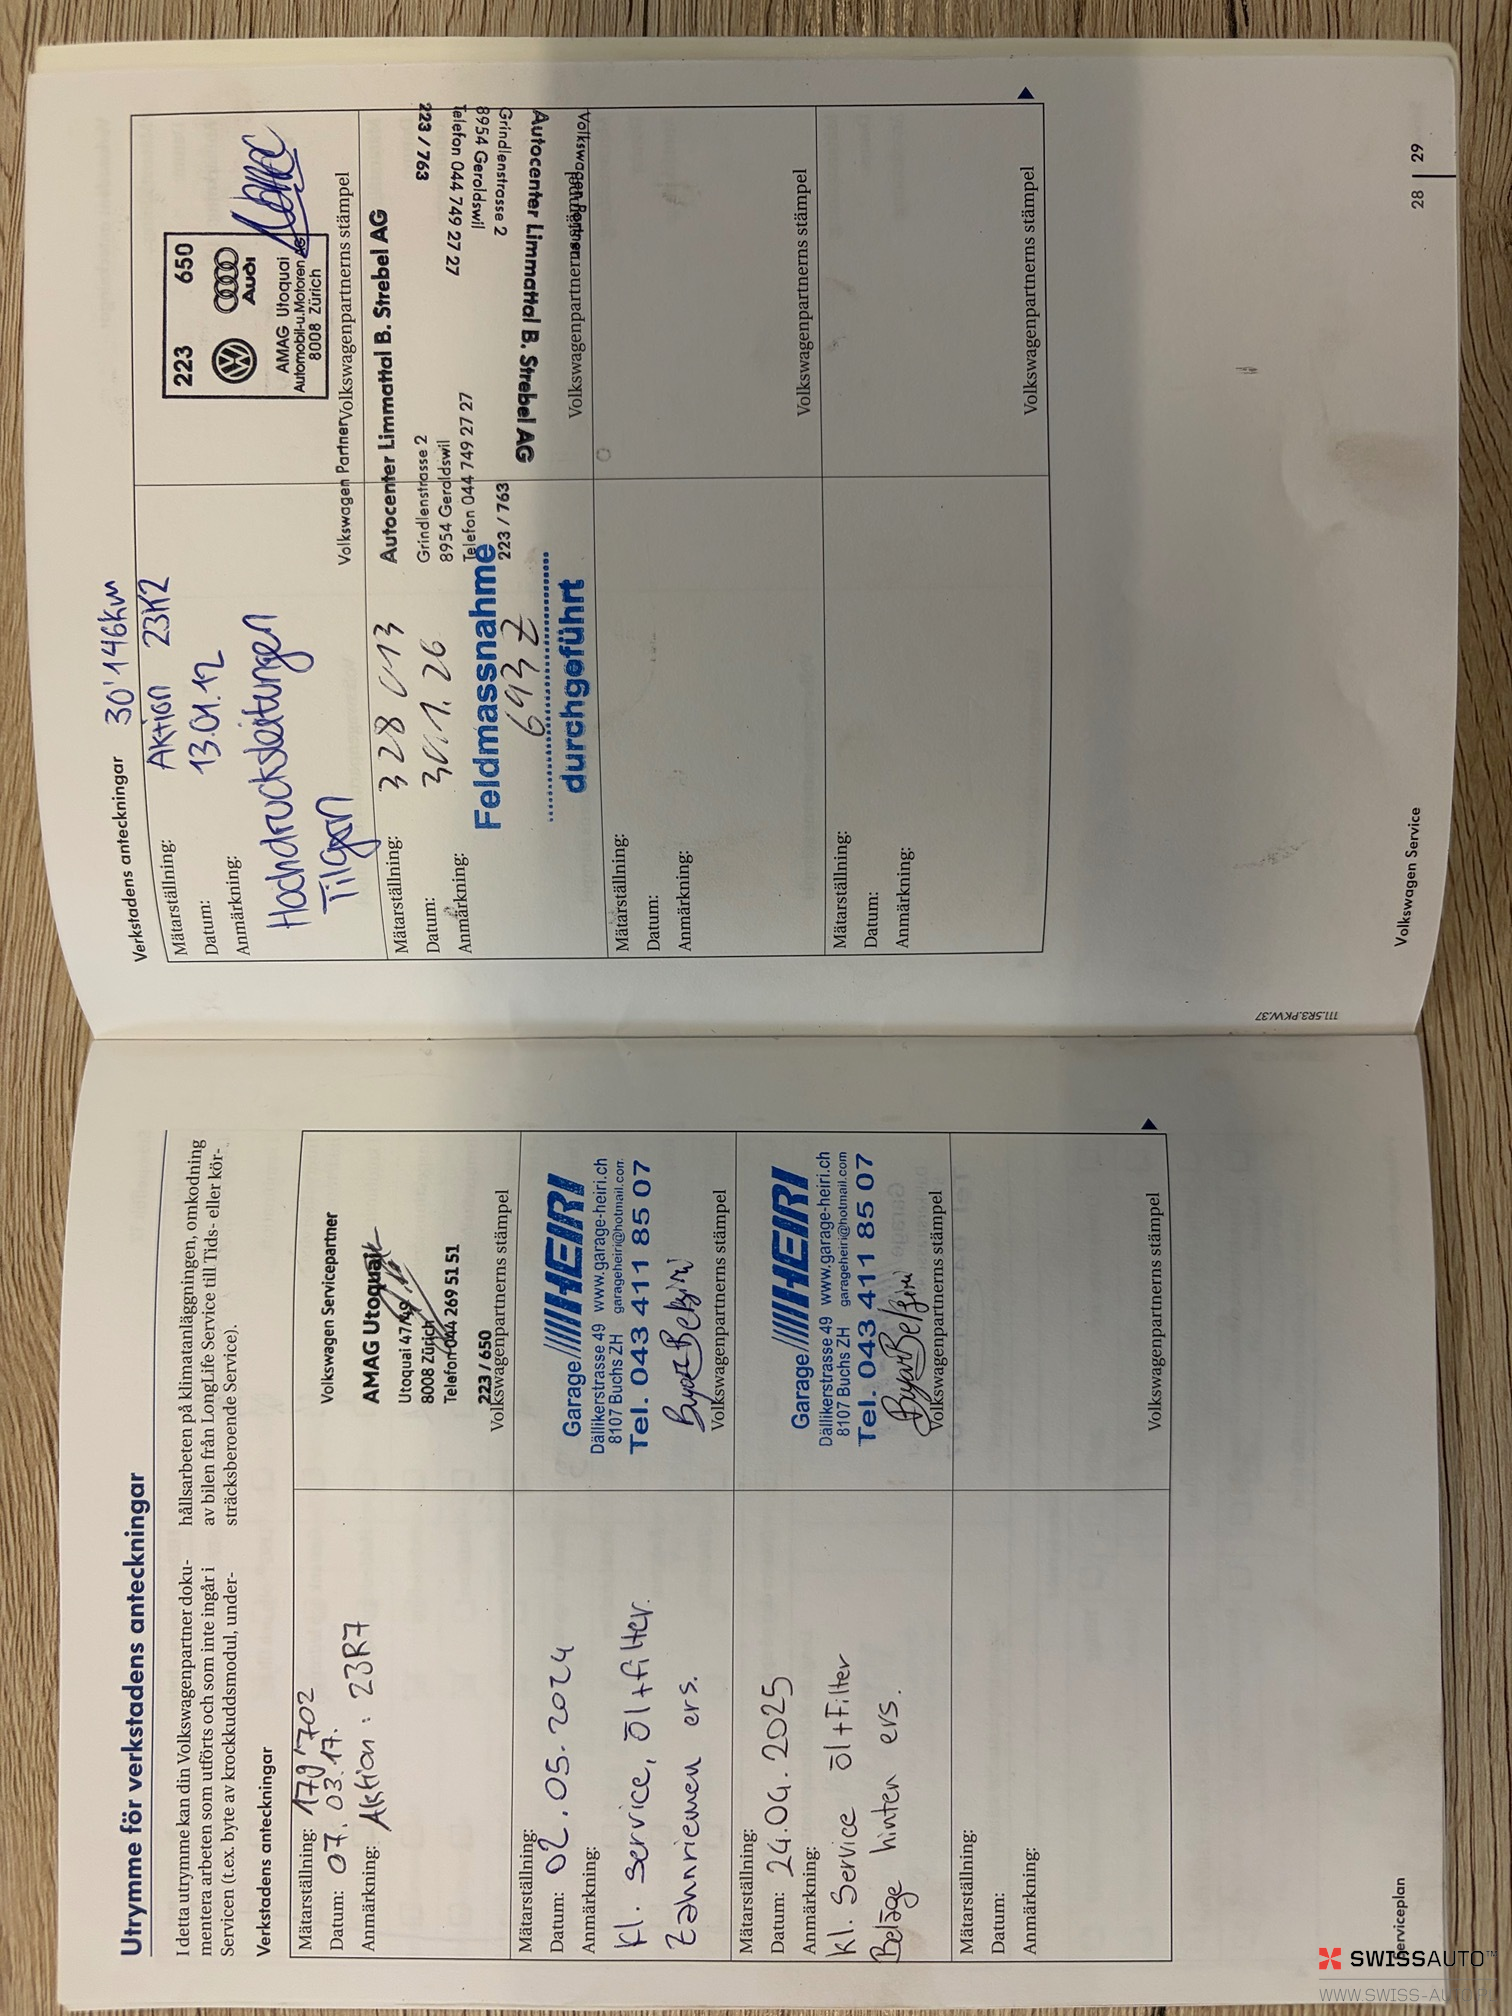 Utrymme för verkstadens anteckningar
I detta utrymme kan din Volkswagenpartner doku-
mentera arbeten som utförts och som inte ingår i
Servicen (t.ex. byte av krockkuddsmodul, under-
hållsarbeten på klimatanläggningen, omkodning
av bilen från LongLife Service till Tids- eller kör-
sträcksberoende Service).
Verkstadens anteckningar
Mätarställning: 179'702
Datum: 07.03.17.
Anmärkning: Aktion: 23R7
Volkswagen Servicepartner
AMAG Utoquai
Utoquai 47/49
8008 Zürich
Telefon 044 269 51 51
223 / 650
Volkswagenpartnerns stämpel
Mätarställning:
Datum: 02.05.2024
Anmärkning:
Kl. service, öl+filter.
Zahnriemen ers.
Garage HEIRI
Dällikerstrasse 49 www.garage-heiri.ch
8107 Buchs ZH garageheiri@hotmail.com
Tel. 043 411 85 07
Volkswagenpartnerns stämpel
Mätarställning:
Datum: 24.04.2025
Anmärkning:
Kl. Service öl+Filter
Beläge hinten ers.
Garage HEIRI
Dällikerstrasse 49 www.garage-heiri.ch
8107 Buchs ZH garageheiri@hotmail.com
Tel. 043 411 85 07
Volkswagenpartnerns stämpel
Mätarställning:
Datum:
Anmärkning:
Volkswagenpartnerns stämpel
Serviceplan
Verkstadens anteckningar 30'146km
Mätarställning: Aktion 23K2
Datum: 13.01.12
Anmärkning:
Hochdrucksleitungen
Tilgen
223 650
Audi
AMAG Utoquai
Automobil-u.Motoren AG
8008 Zürich
Volkswagen Partner
Volkswagenpartnerns stämpel
Mätarställning: 328 013
Datum: 30.1.26
Anmärkning:
Feldmassnahme
693Z
durchgeführt
Autocenter Limmattal B. Strebel AG
Grindlenstrasse 2
8954 Geroldswil
Telefon 044 749 27 27
223 / 763
Volkswagen Partner
Autocenter Limmattal B. Strebel AG
Grindlenstrasse 2
8954 Geroldswil
Telefon 044 749 27 27
223 / 763
Volkswagenpartnerns stämpel
Mätarställning:
Datum:
Anmärkning:
Volkswagenpartnerns stämpel
Mätarställning:
Datum:
Anmärkning:
Volkswagenpartnerns stämpel
111.5R3.PKW.37
Volkswagen Service
28 | 29
SWISSAUTO™